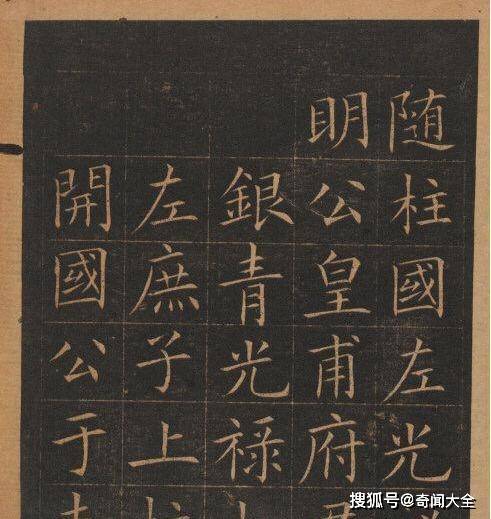 随柱國左光
明公皇甫府
銀青光禄
左庶子上
開國公于
搜狐号@奇闻大全